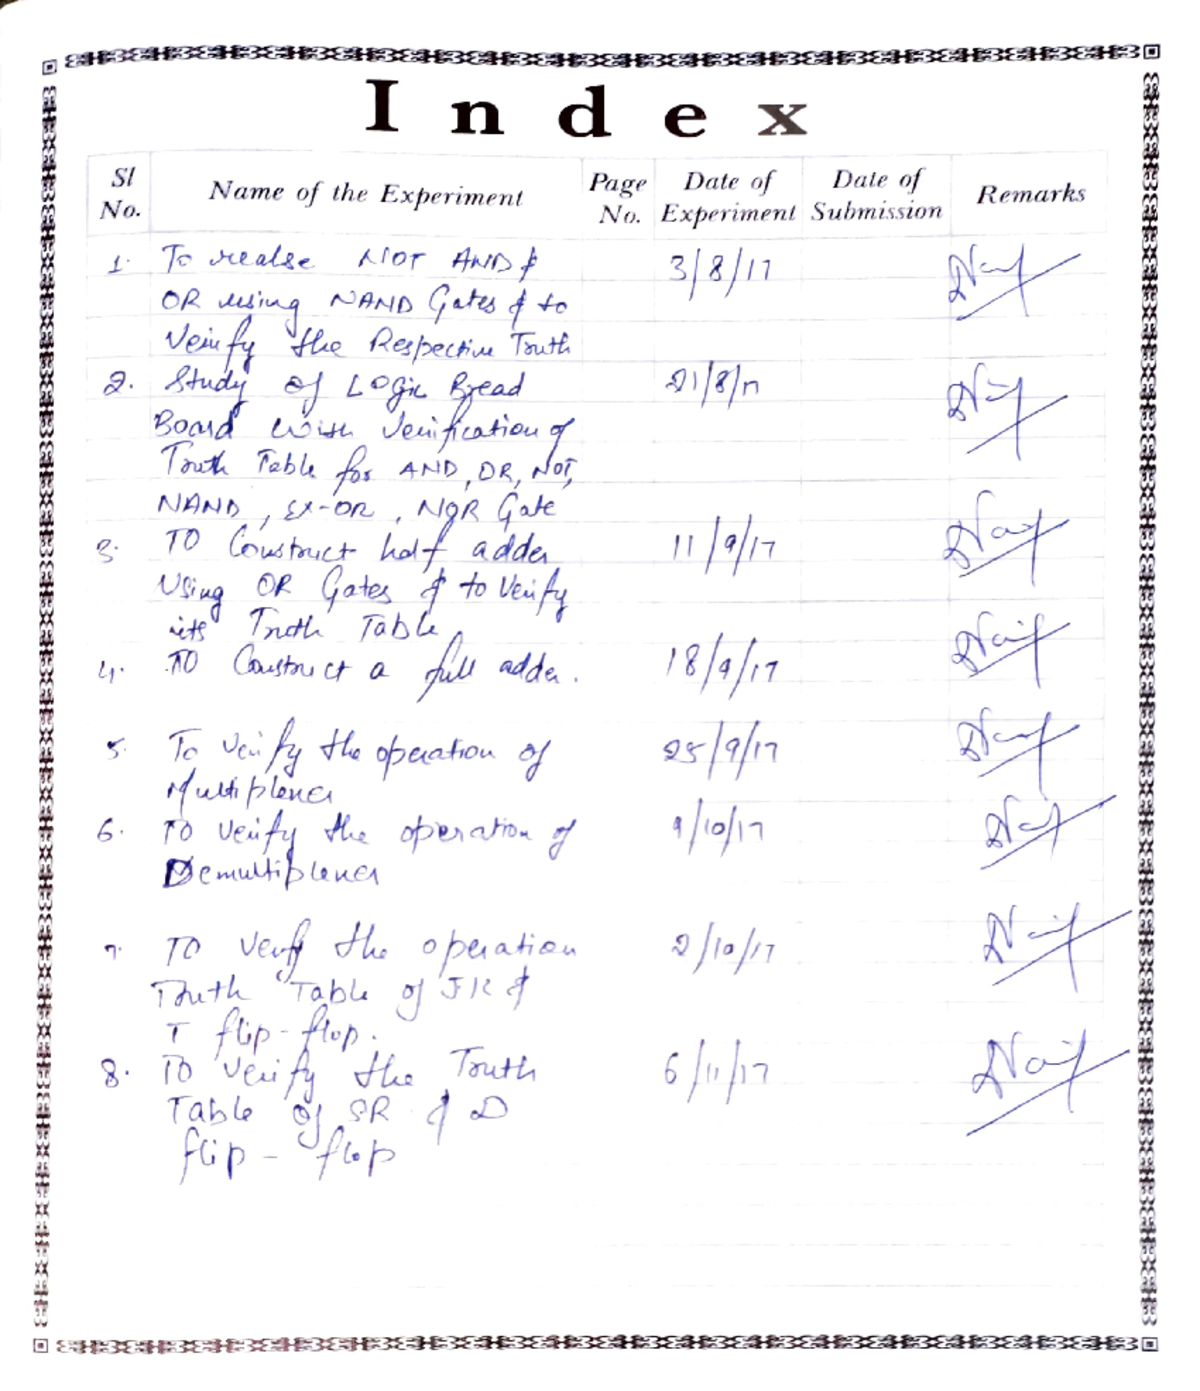 Index
Sl No. Name of the Experiment Page No. Date of Experiment Date of Submission Remarks
1. To realse NOT AND & 3/8/17
OR using NAND Gates & to
Verify the Respective Truth
2. Study of Logic Bread 21/8/17
Board with Verification of
Truth Table for AND, OR, NOT,
NAND, EX-OR, NOR Gate
3. TO Construct half adder 11/9/17
Using OR Gates & to Verify
its Truth Table
4. TO Construct a full adder. 18/9/17
5. To Verify the operation of 25/9/17
Multiplexer
6. TO Verify the operation of 9/10/17
Demultiplexer
7. TO Verfy the operation 2/10/17
Truth Table of JK &
T flip-flop.
8. TO Verify the Truth 6/11/17
Table of SR & D
flip - flop